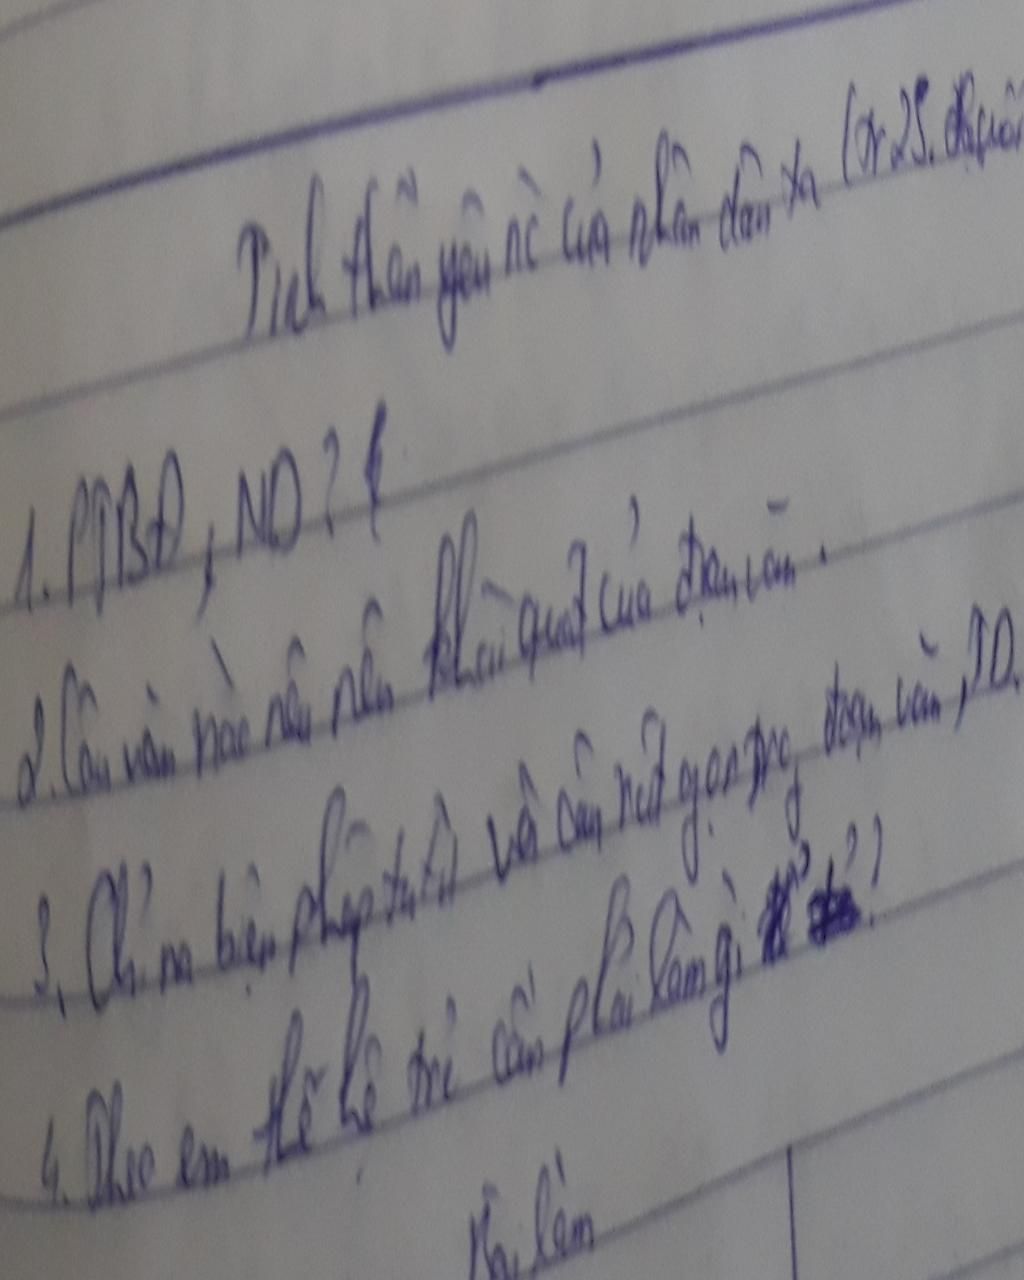 Tinh thần yêu nc của nhân dân ta (tr 25. đ
1. PTBĐ, ND?
2. Câu văn nào nêu nên khái quát của đoạn văn.
3. Chỉ ra biện pháp tu từ và câu rút gọn trg đoạn văn, TD.
4. Theo em thế hệ trẻ cần phải làm gì ?
Bài làm